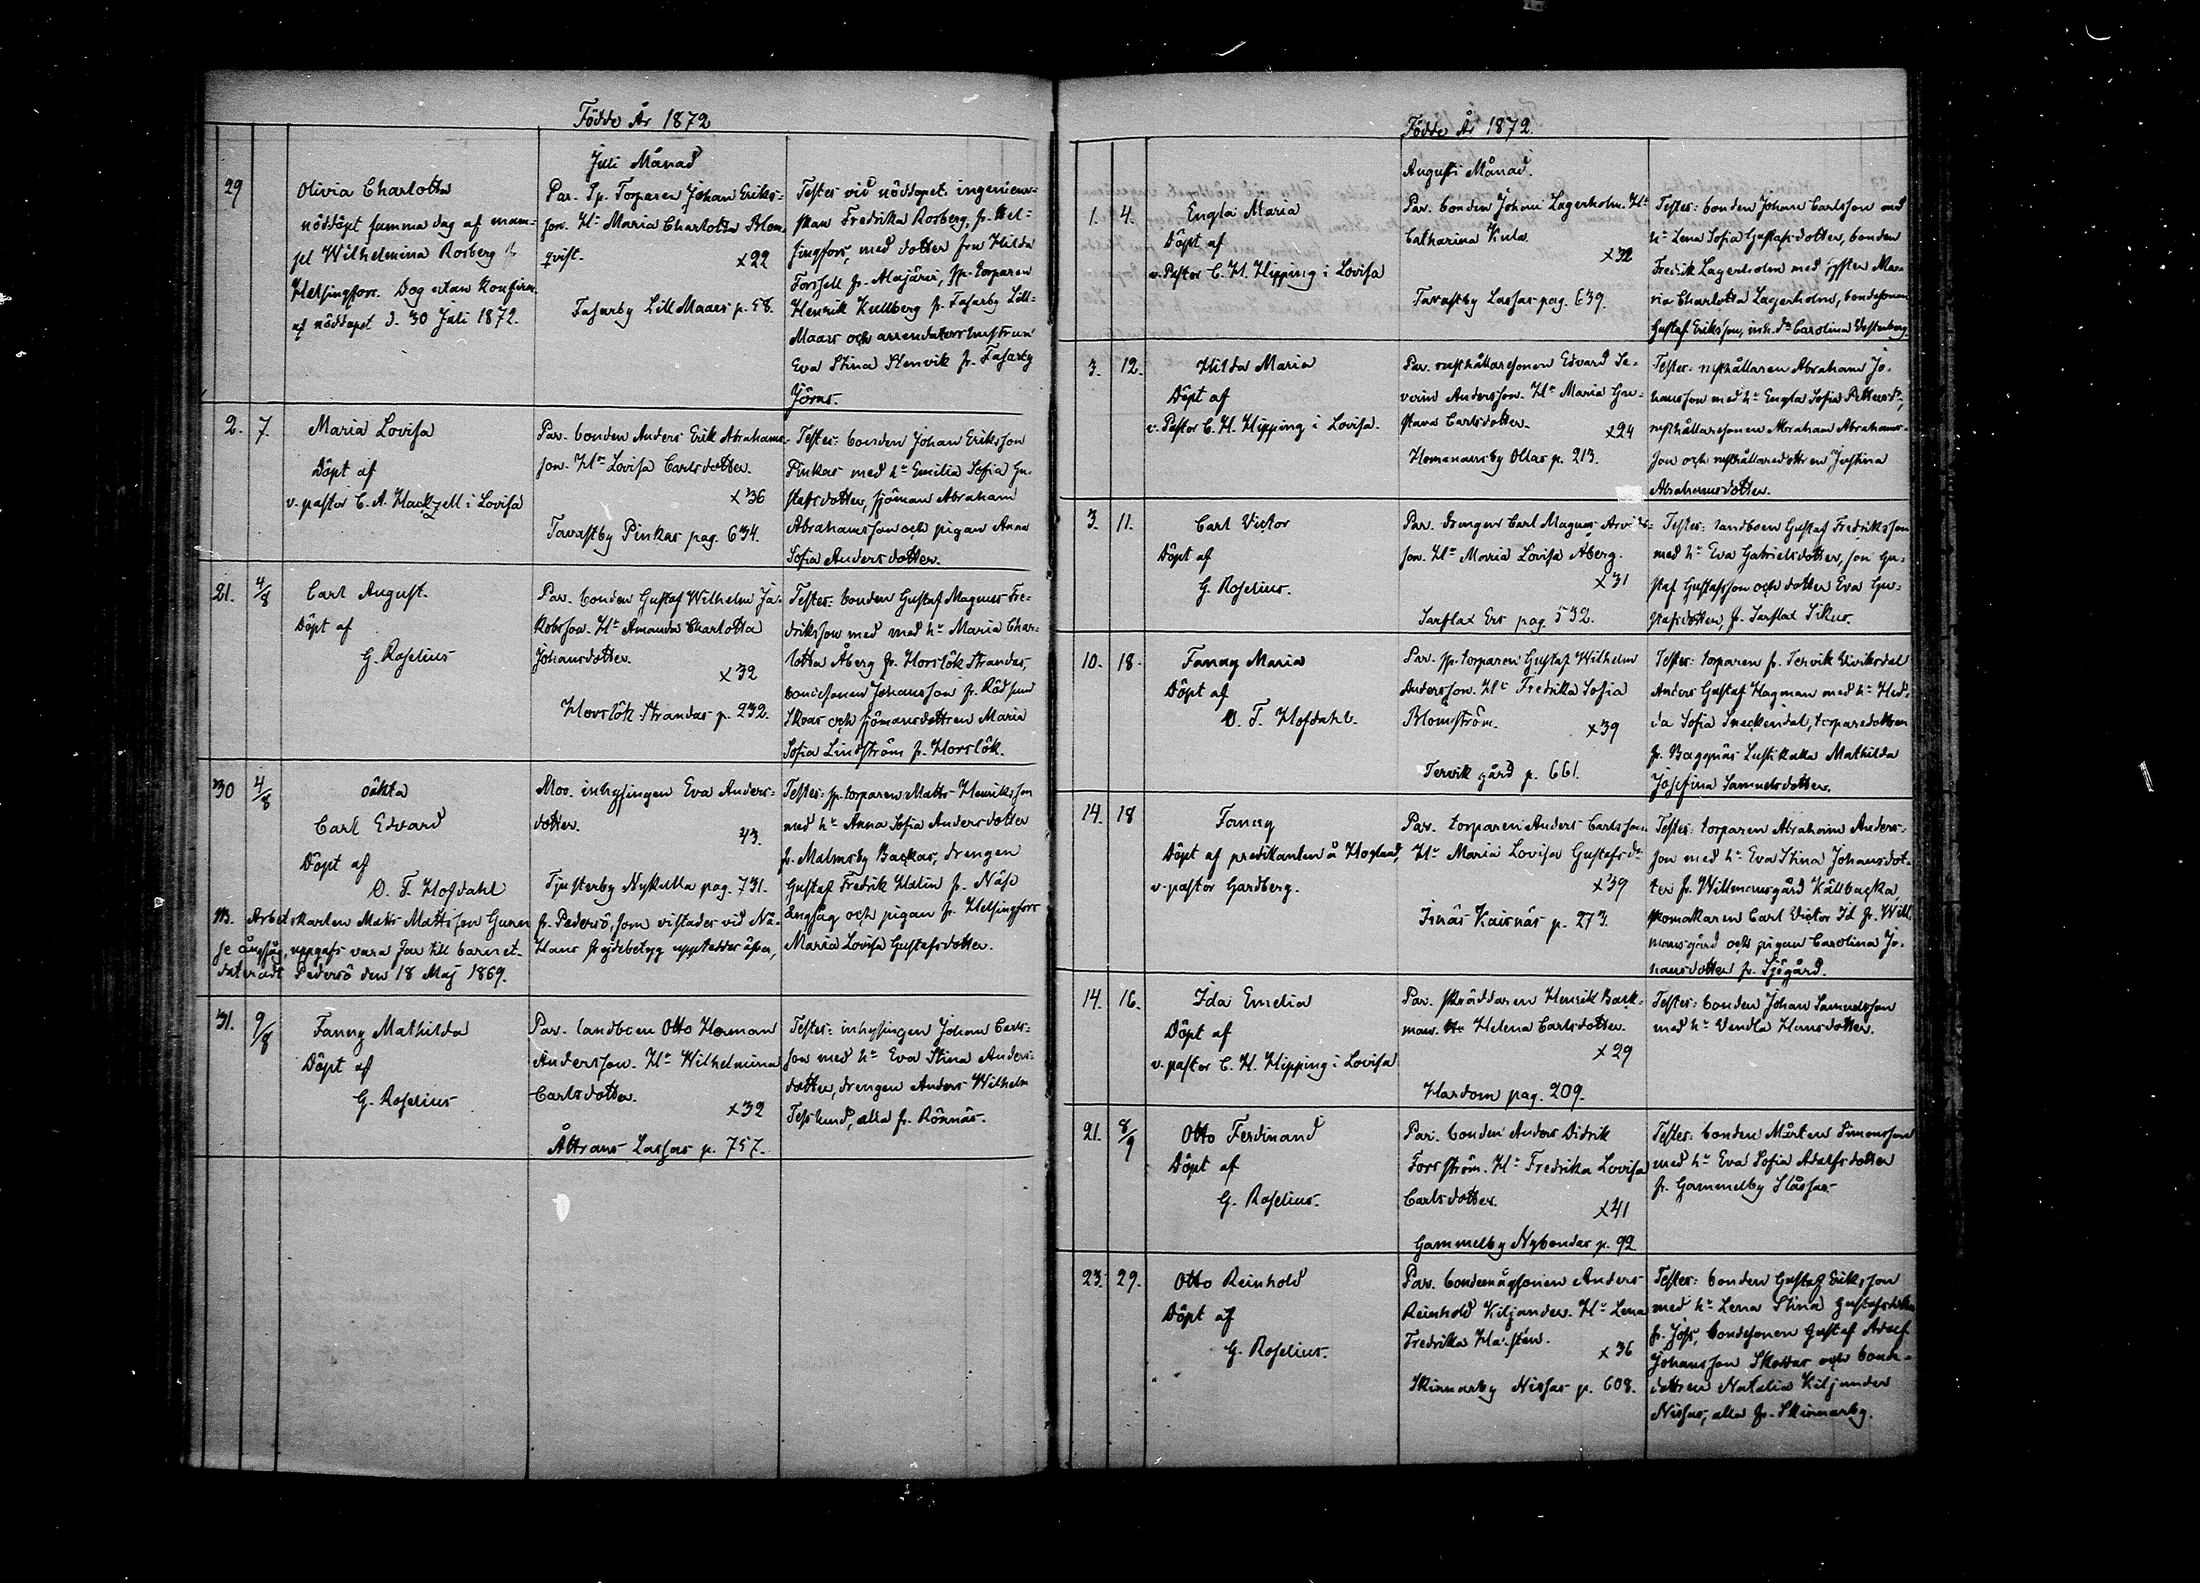 Födde År 1872
Juli Månad
29
Olivia Charlotta
nöddöpt samma dag af mam-
sel Wilhelmina Rosberg fr.
Helsingfors. Dog utan konfirm.
af nöddopet d. 30 Juli 1872.
Par. Sp. Torparen Johan Eriks-
son. H:u Maria Charlotta Blom-
qvist. x22
Fasarby LillMaars p. 58.
Testes vid nöddopet: ingenieur-
skan Fredrika Rosberg, fr. Hel-
singfors, med dotter fru Hilda
Forssell fr. Alajärvi, sp. torparen
Henrik Kullberg fr. Fasarby Lill-
Maars och arrendators
Eva Stina Stenvik fr. Fasarby
Jörns.
2. 7.
Maria Lovisa
Döpt af
v. pastor C. A. Hackzell i Lovisa
Par. bonden Anders Erik Abrahams-
son. H:u Lovisa Carlsdotter.
x36
Tavastby Pinkas pag. 634.
Testes: bonden Johan Eriksson
Pinkas med h:u Emilia Sofia Gu-
stafsdotter, sjöman Abraham
Abrahamsson och pigan Anna
Sofia Andersdotter.
21. 4/8
Carl August.
Döpt af
G. Roselius
Par. bonden Gustaf Wilhelm Ja-
kobsson. H:u Amanda Charlotta
Johansdotter.
x32
Horslök Strandas p. 232.
Testes: bonden Gustaf Magnus Fre-
driksson med med h:u Maria Char-
lotta Åberg fr. Horslök Strandas,
bondesonen Johansson fr. Rödsund
Skoas och sjömansdottren Maria
Sofia Lindström fr. Horslök.
30 4/8
oäkta
Carl Edvard
Döpt af
O. T. Hofdahl
Moo. inhysingen Eva Anders-
dotter.
43.
Tjusterby Nykulla pag. 731.
Testes: sp. torparen Matts Henriksson
med h:u Anna Sofia Andersdotter
fr. Malmsby Backas, drengen
Gustaf Fredrik Malin fr. Näse
ångsåg och pigan fr. Helsingfors
Maria Lovisa Gustafsdotter.
NB. Arbetskarlen Matts Mattsson Gunn fr. Pedersö, som vistades vid Nä-
se ångsåg, uppgafs vara far till barnet. Hans frejdebetyg
dateradt Pedersö den 18 Maj 1869.
31. 9/8
Fanny Mathilda
Döpt af
G. Roselius
Par. landboen Otto Herman
Andersson. H:u Wilhelmina
Carlsdotter.
x32
Åttrans Lassas p. 757.
Testes: inhysingen Johan Carls-
son med h:u Eva Stina Anders-
dotter, drengen Anders Wilhelm
Teslund, alla fr. Rönnäs.
Födde År 1872.
Augusti Månad.
1. 4.
Engla Maria
Döpt af
v. Pastor C. H. Hipping i Lovisa
Par. bonden Johan Lagerholm. H:u
Catharina Kula.
x32
Tavastby Lassas pag. 639.
Testes: bonden Johan Carlsson med
h:u Lena Sofia Gustafsdotter, bonden
Fredrik Lagerholm med syster Ma-
ria Charlotta Lagerholm, bondesonen
Gustaf Eriksson, inh. d:r Carolina Westenberg.
3. 12.
Hilda Maria
Döpt af
v. Pastor C. H. Hipping i Lovisa.
Par. rusthållaresonen Edvard Se-
verin Andersson. H:u Maria Gu-
stava Carlsdotter.
x24
Hommansby Ollas p. 213.
Testes: rusthållaren Abraham Jo-
hansson med h:u Engla Sofia Pettersd:r,
rusthållaresonen Abraham Abrahams-
son och rusthållaredottren Justina
Abrahamsdotter.
3. 11.
Carl Victor
Döpt af
G. Roselius.
Par. drengen Carl Magnus Arvids-
son. H:u Maria Lovisa Åberg.
x31
Sarflax Ers pag. 532.
Testes: landboen Gustaf Fredriksson
med h:u Eva Gabrielsdotter, son Gu-
staf Gustafsson och dotter Eva Gu-
stafsdotter, fr. Sarflax Sikus.
10. 18.
Fanny Maria
Döpt af
O. T. Hofdahl.
Par. sp. torparen Gustaf Wilhelm
Andersson. H:u Fredrika Sofia
Blomström.
x39
Tervik gård p. 661.
Testes: torparen fr. Tervik Ulriksdal
Anders Gustaf Hagman med h:u Hed-
da Sofia Sneckendal, torparedottren
fr. Baggnäs Lustikulla Mathilda
Josefina Samuelsdotter.
14. 18
Fanny
Döpt af predikanten å Hogland,
v. pastor Gardberg.
Par. torparen Anders Carlsson.
H:u Maria Lovisa Gustafsd:r
x39
Isnäs Kaisnäs p. 273.
Testes: torparen Abraham Anders-
son med h:u Eva Stina Johansdot-
ter fr. Willmansgård Källbacka,
skomakaren Carl Victor Id fr. Will-
mansgård och pigan Carolina Jo-
hansdotter fr. Sjögård.
14. 16.
Ida Emelia
Döpt af
v. pastor C. H. Hipping i Lovisa
Par. skräddaren Henrik Back-
man. H:u Helena Carlsdotter.
x29
Hardom pag. 209.
Testes: bonden Johan Samuelsson
med h:u Vendla Hansdotter.
21. 8/9
Otto Ferdinand
Döpt af
G. Roselius.
Par. bonden Anders Didrik
Forsström. H:u Fredrika Lovisa
Carlsdotter.
x41
Gammelby Nybondas p. 92.
Testes: bonden Mårten Simonsson
med h:u Eva Sofia Adolfsdotter
fr. Gammelby Slåssas.
23. 29.
Otto Reinhold
Döpt af
G. Roselius.
Par. bondemågsonen Anders
Reinhold Kiljander. H:u Lena
Fredrika Hasstén.
x36
Skinnarby Nissas p. 608.
Testes: bonden Gustaf Eriksson
med h:u Lena Stina Gustafsdotter
fr. Joss, bondesonen Gustaf Adolf
Johansson Skottas och bonde-
dottren Natalia Kiljander
Nissas, alla fr. Skinnarby.